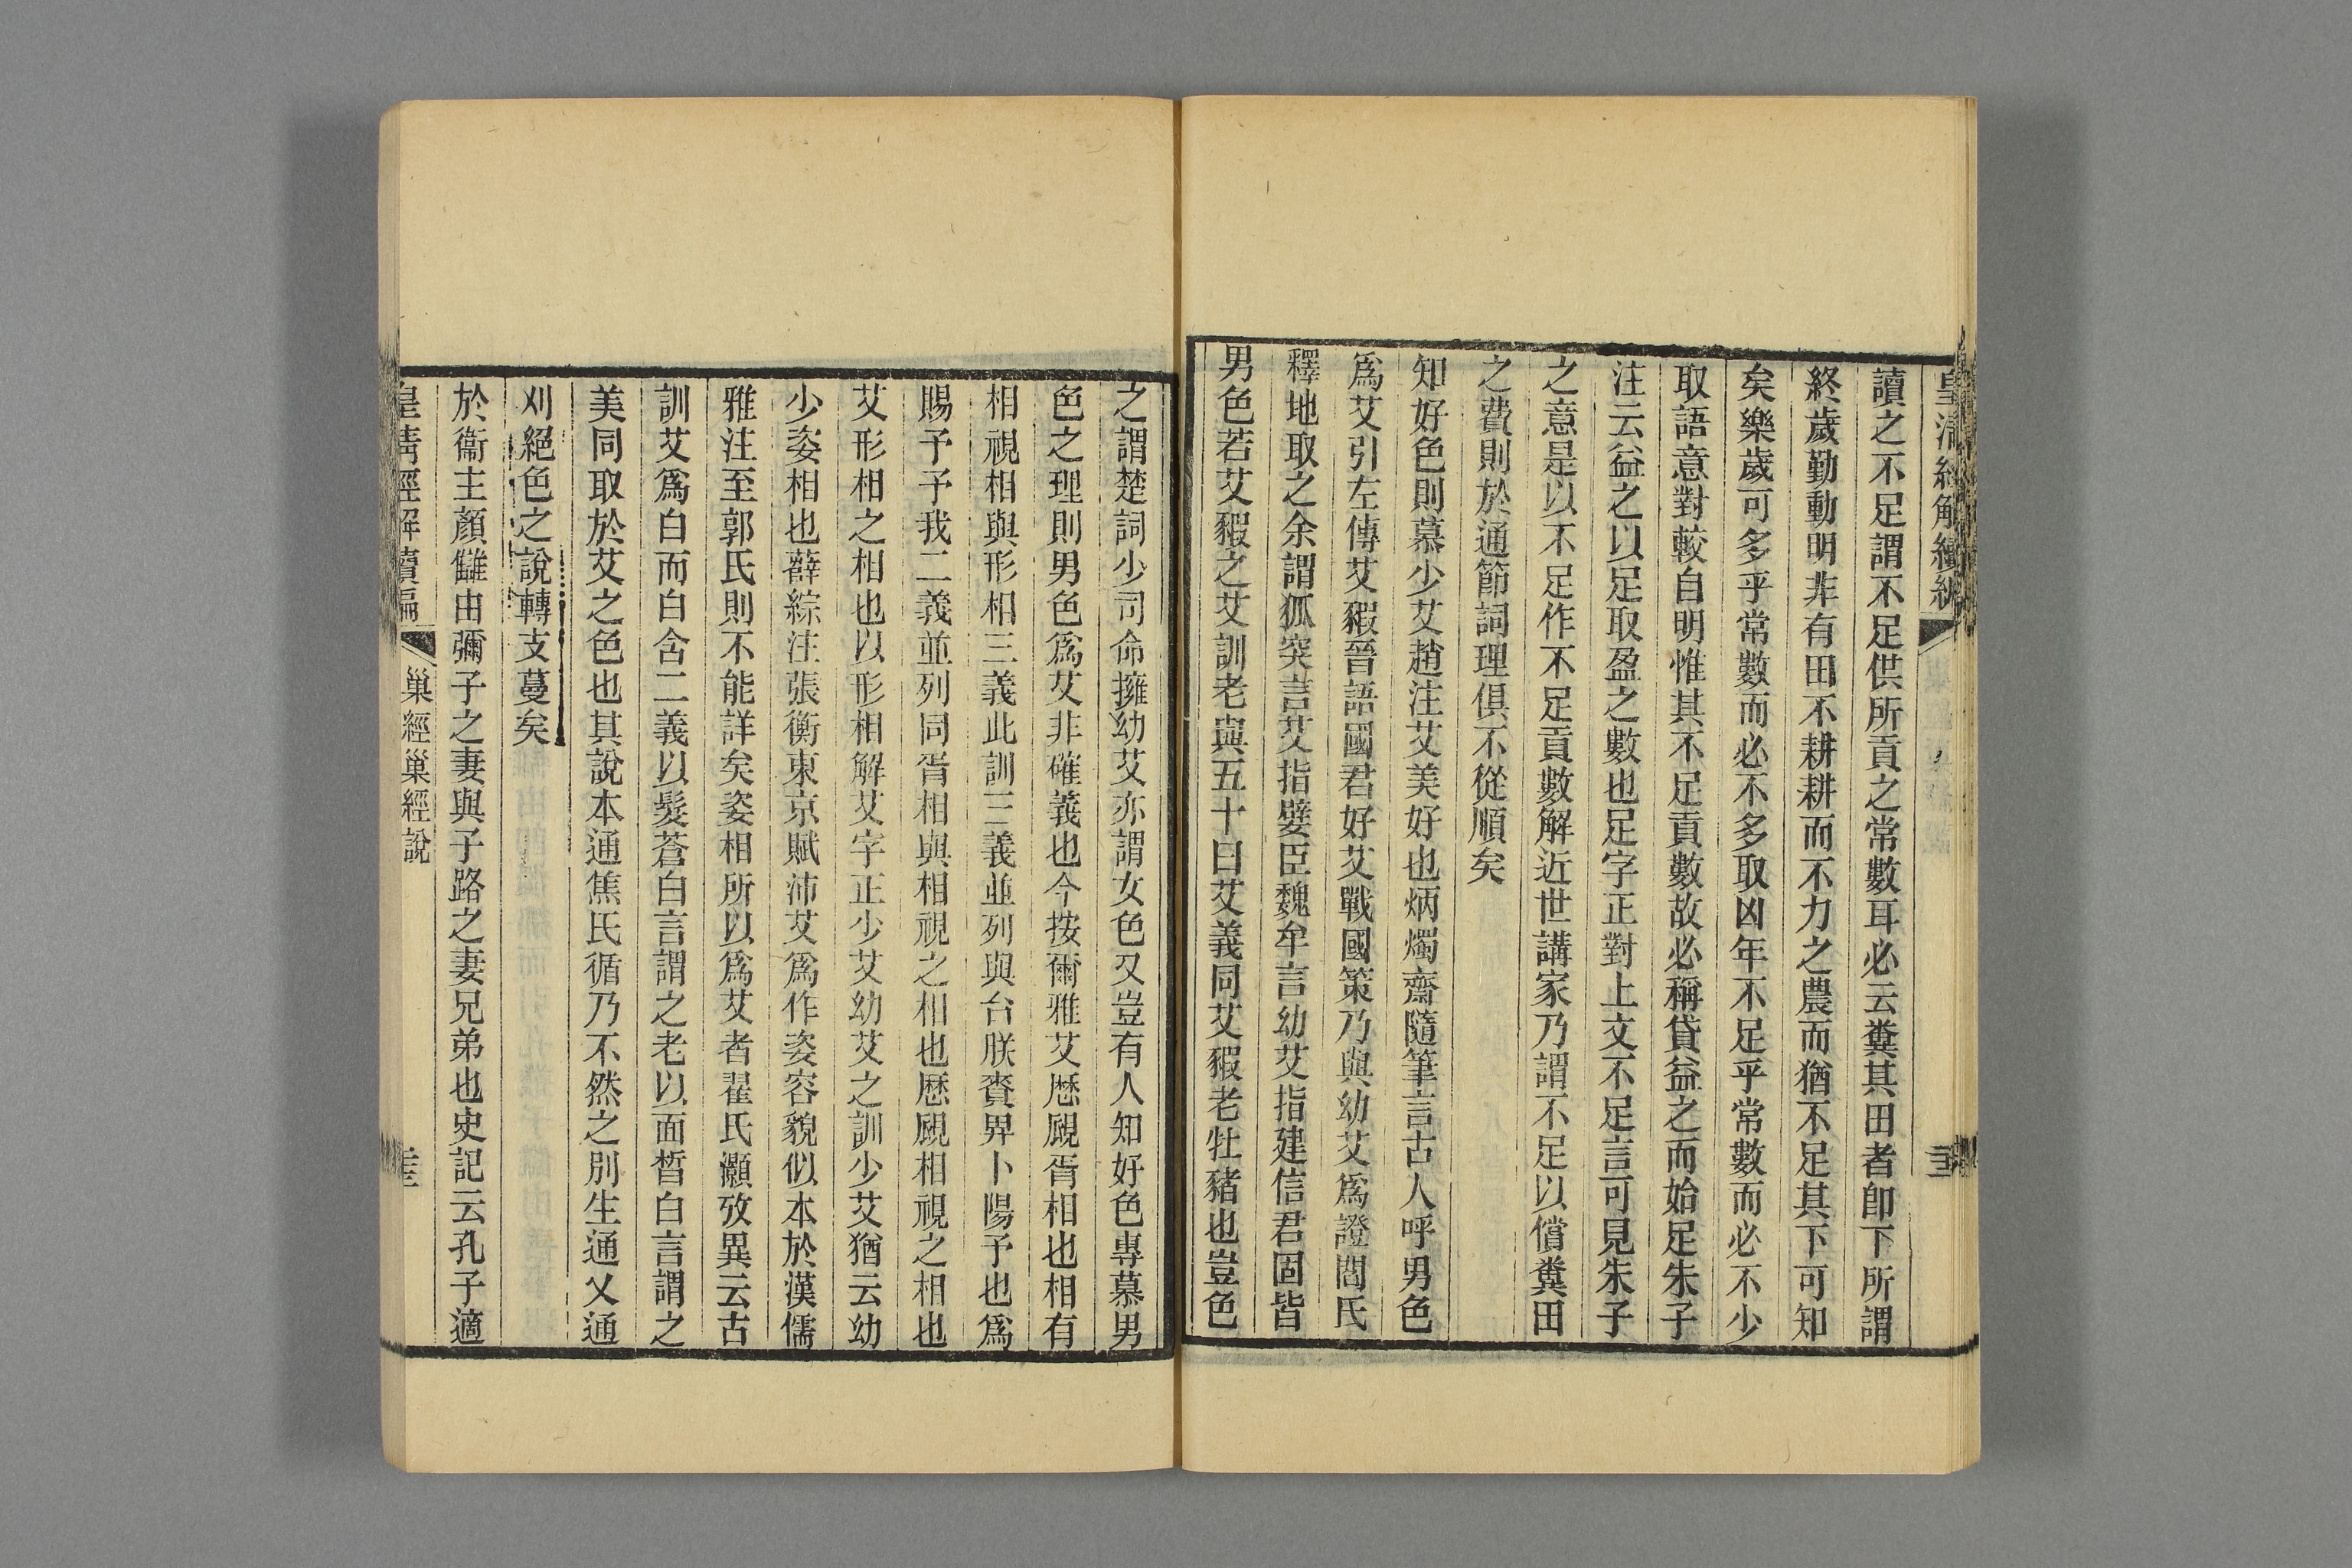 皇清經解續編
讀之不足謂不足供所貢之常數耳必云糞其田者卽下所謂
終歲勤動明非有田不耕耕而不力之農而猶不足其下可知
矣樂歲可多乎常數而必不多取凶年不足乎常數而必不少
取語意對較自明惟其不足貢數故必稱貸益之而始足朱子
注云益之以足取盈之數也足字正對上文不足言可見朱子
之意是以不足作不足貢數解近世講家乃謂不足以償糞田
之費則於通節詞理俱不從順矣
知好色則慕少艾趙注艾美好也炳燭齋隨筆言古人呼男色
爲艾引左傳艾豭晉語國君好艾戰國策乃與幼艾爲證閻氏
釋地取之余謂狐突言艾指嬖臣魏牟言幼艾指建信君固皆
男色若艾豭之艾訓老與五十曰艾義同艾豭老牡豬也豈色
之謂楚詞少司命擁幼艾亦謂女色又豈有人知好色專慕男
色之理則男色爲艾非確義也今按爾雅艾歷覛胥相也相有
相視相與形相三義此訓三義並列與台朕賚畀卜陽予也爲
賜予予我二義並列同胥相與相視之相也歷覛相視之相也
艾形相之相也以形相解艾字正少艾幼艾之訓少艾猶云幼
少姿相也薛綜注張衡東京賦沛艾爲作姿容貌似本於漢儒
雅注至郭氏則不能詳矣姿相所以爲艾者翟氏灝攷異云古
訓艾爲白而白含二義以髮蒼白言謂之老以面皙白言謂之
美同取於艾之色也其說本通焦氏循乃不然之別生通乂通
刈絕色之說轉支蔓矣
於衞主顏讎由彌子之妻與子路之妻兄弟也史記云孔子適
皇清經解續編
巢經巢經說